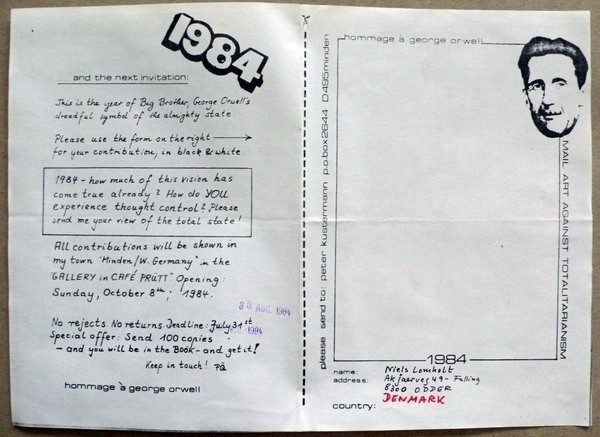 1984
and the next invitation:
This is the year of Big Brother, George Orwell's
dreadful symbol of the almighty state.
Please use the form on the right
for your contribution, in black & white.
1984 - how much of this vision has
come true already? How do YOU
experience thought control? Please
send me your view of the total state!
All contributions will be shown in
my town "Minden/W. Germany" in the
"GALLERY in CAFÉ PRÜTT" Opening:
Sunday, October 8th, 1984.
30. AUG. 1984
No rejects. No returns. Deadline: July 31st
1984
Special offer: Send 100 copies
- and you will be in the BOOK - and get it!
Keep in touch!
hommage à george orwell
please send to: peter kustermann p.o.box 2644 D495 minden
hommage à george orwell
MAIL ART AGAINST TOTALITARIANISM
1984
name: Niels Lomholt
address:
8300 ODDER
country: DENMARK